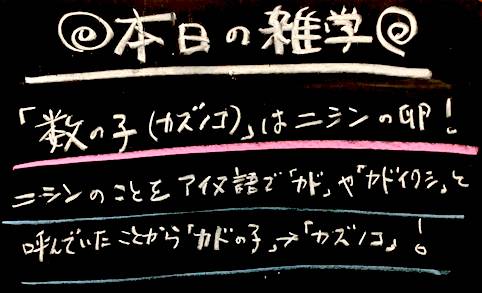 本日の雑学
「数の子(カズノコ)」はニシンの卵!
ニシンのことをアイヌ語で「カド」や「カドイワシ」と
呼んでいたことから「カドの子」→「カズノコ」!